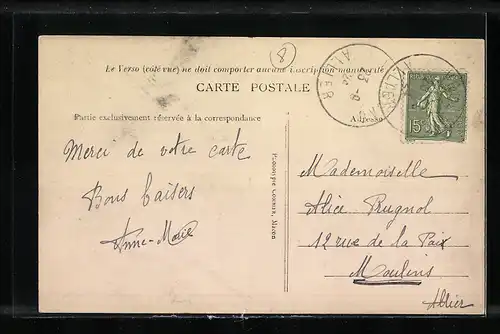 8
Le Verso (côté vue) ne doit comporter aucune inscription manuscrite
CARTE POSTALE
Partie exclusivement réservée à la correspondance
Adresse
ALLIER
15c
Merci de votre carte
Bons baisers
Anne-Marie
Phototypie Combier, Macon
Mademoiselle
Alice Prugnol
12 rue de la Paix
Moulins
Allier